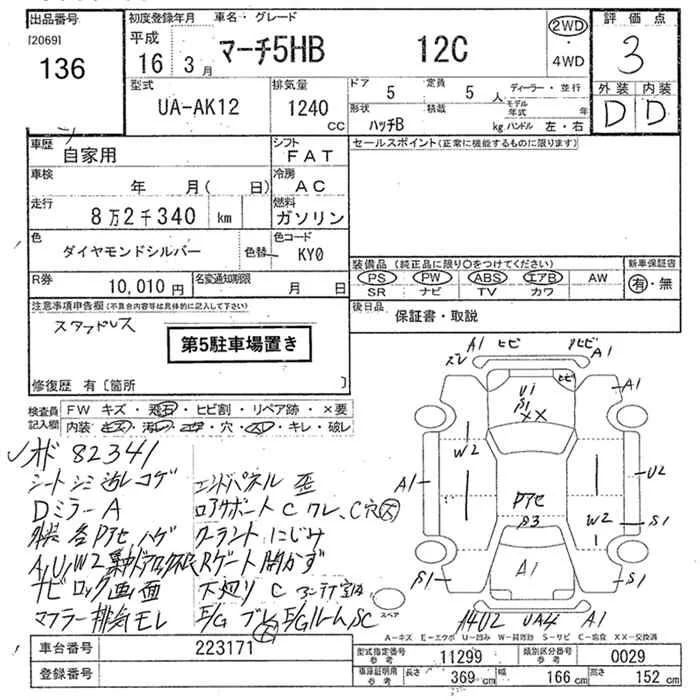 出品番号
[2069]
136
初度登録年月
平成
16年3月
車名・グレード
マーチ5HB 12C
2WD
・
4WD
評価点
3
外装 内装
D D
型式
UA-AK12
排気量
1240
CC
ドア
5
定員
5人
ディーラー・並行
形状
ハッチB
積載
kg
モデル年式 年
ハンドル 左・右
車歴
自家用
シフト
FAT
車検
年 月( 日)
冷房
AC
走行
8万2千340 km
燃料
ガソリン
色
ダイヤモンドシルバー
色替
色コード
KY0
R券
10,010円
名変通知期限
月 日
セールスポイント(正常に機能するものに限ります)
装備品(純正品に限り○をつけてください)
PS PW ABS エアB AW
SR ナビ TV カワ
新車保証書
有・無
後日品
保証書・取説
注意事項申告欄(不具合内容等は具体的に記入して下さい)
スタッドレス
第5駐車場置き
修復歴 有〔箇所 〕
検査員
記入欄
FW キズ・飛石・ヒビ割・リペア跡・×要
内装 キズ・汚レ・コゲ・穴・スレ・キレ・破レ
82341
シートシミ汚レコゲ
DミラーA
ナビロック画面
マフラー排気モレ
エンドパネル歪
クーラントにじみ
Rゲート開かず
A1 ヒビ
ヒビ A1
U1
S1
XX
ヒビ
A1
W2
A1
U2
S1
W2
A1
S1
S1
A4U2 UA4 A1
スペア
A-キズ E-エクボ U-凹み W-補修跡 S-サビ C-腐食 XX-交換済
車台番号
223171
登録番号
型式指定番号
参考
11299
類別区分番号
参考
0029
参考
長さ 369 cm
幅 166 cm
高さ 152 cm